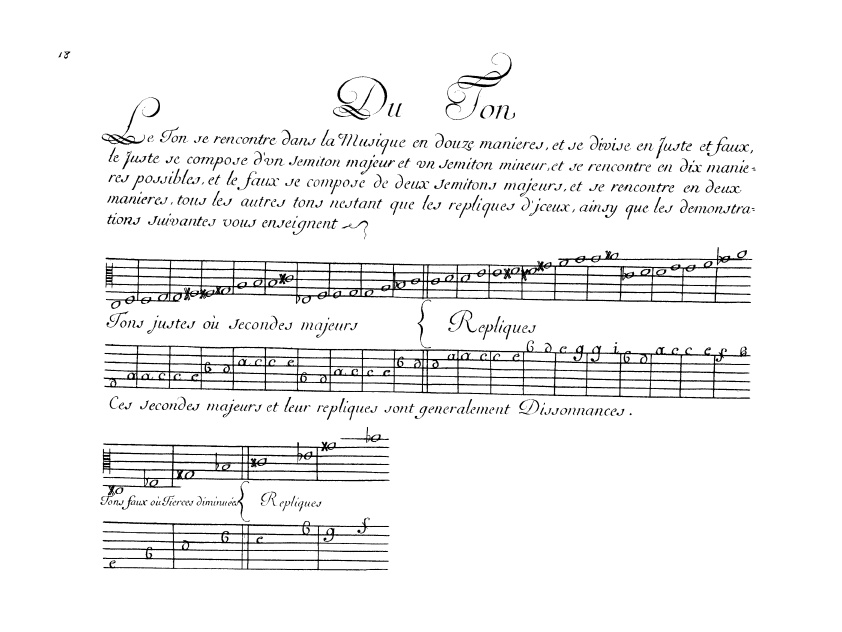 18
Du Ton
Le Ton se rencontre dans la Musique en douze manieres, et se divise en Juste et faux,
le Juste se compose d'vn semiton majeur et vn semiton mineur, et se rencontre en dix manie=
res possibles, et le faux se compose de deux semitons majeurs, et se rencontre en deux
manieres, tous les autres tons nestant que les repliques d'jceux, ainsy que les demonstra=
tions suivantes vous enseignent
Tons justes où secondes majeurs { Repliques
Ces secondes majeurs et leur repliques sont generalement Dissonnances.
Tons faux où Tierces diminuées { Repliques
e b d b e b g f